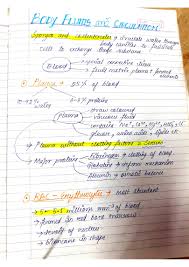 Body Fluids and Circulation
Sponges and coelenterates → circulate water through
body cavities to facilitate
cells to exchange these substances
Blood → special connective tissue
→ fluid matrix, plasma & formed
elements
Plasma : 55% of blood
6-8% proteins
Plasma → straw coloured
→ viscous fluid
→ glucose, amino acids, lipids etc
Plasma without clotting factors = Serum
Major proteins → Fibrinogen → clotting of blood
→ Globulins → defense mechanism
→ Albumin → osmotic balance
RBC - Erythrocytes → most abundant
→ formed in red bone marrow
→ devoid of nucleus
→ biconcave in shape